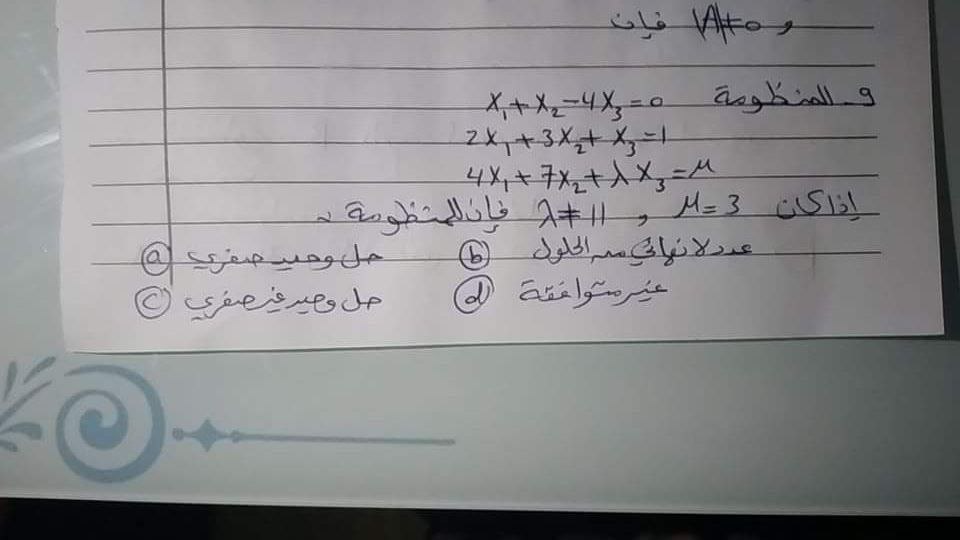 و |A|≠0 فإن
و- المنظومة x₁+x₂-4x₃=0
2x₁+3x₂+x₃=1
4x₁+7x₂+λx₃=μ
إذا كان μ=3 , λ≠11 فإن للمنظومة
ⓐ حل وحيد صفري ⓑ عدد لا نهائي من الحلول
ⓒ حل وحيد غير صفري ⓓ غير متوافقة